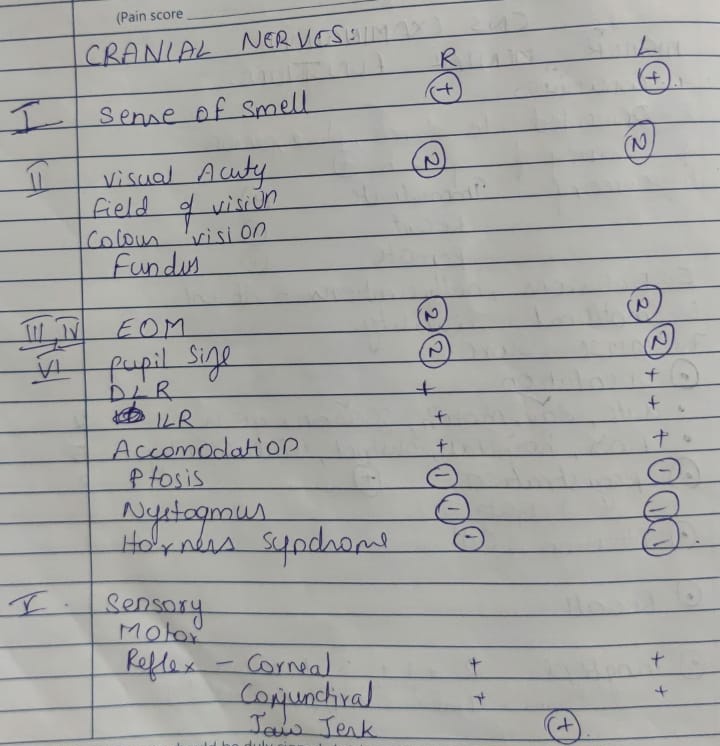 (Pain score
CRANIAL NERVES:
R L
I Sense of smell + +
II Visual Acuty N N
Field of vision
Colour vision
Fundus
III, IV EOM N N
VI pupil size N N
DLR + +
ILR + +
Accomodation + +
Ptosis - -
Nystagmus - -
Horners syndrome - -
V. Sensory
Motor
Reflex - Corneal + +
Conjunctival + +
Jaw Jerk +